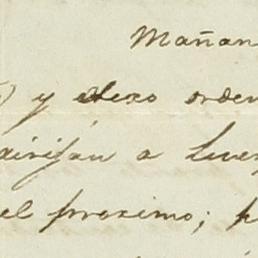 Mañan
y dexo orden
dirijan a Luez
el proximo; p